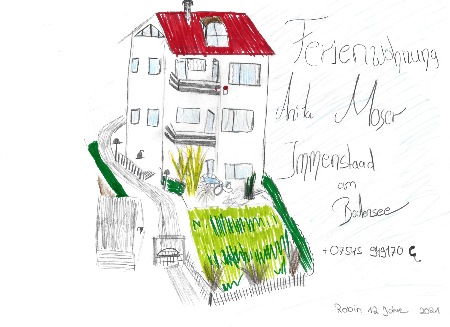 Ferienwohnung
Anita Moser
Immenstaad
am
Bodensee
+07545 949170
Robin 12 Jahre 2021